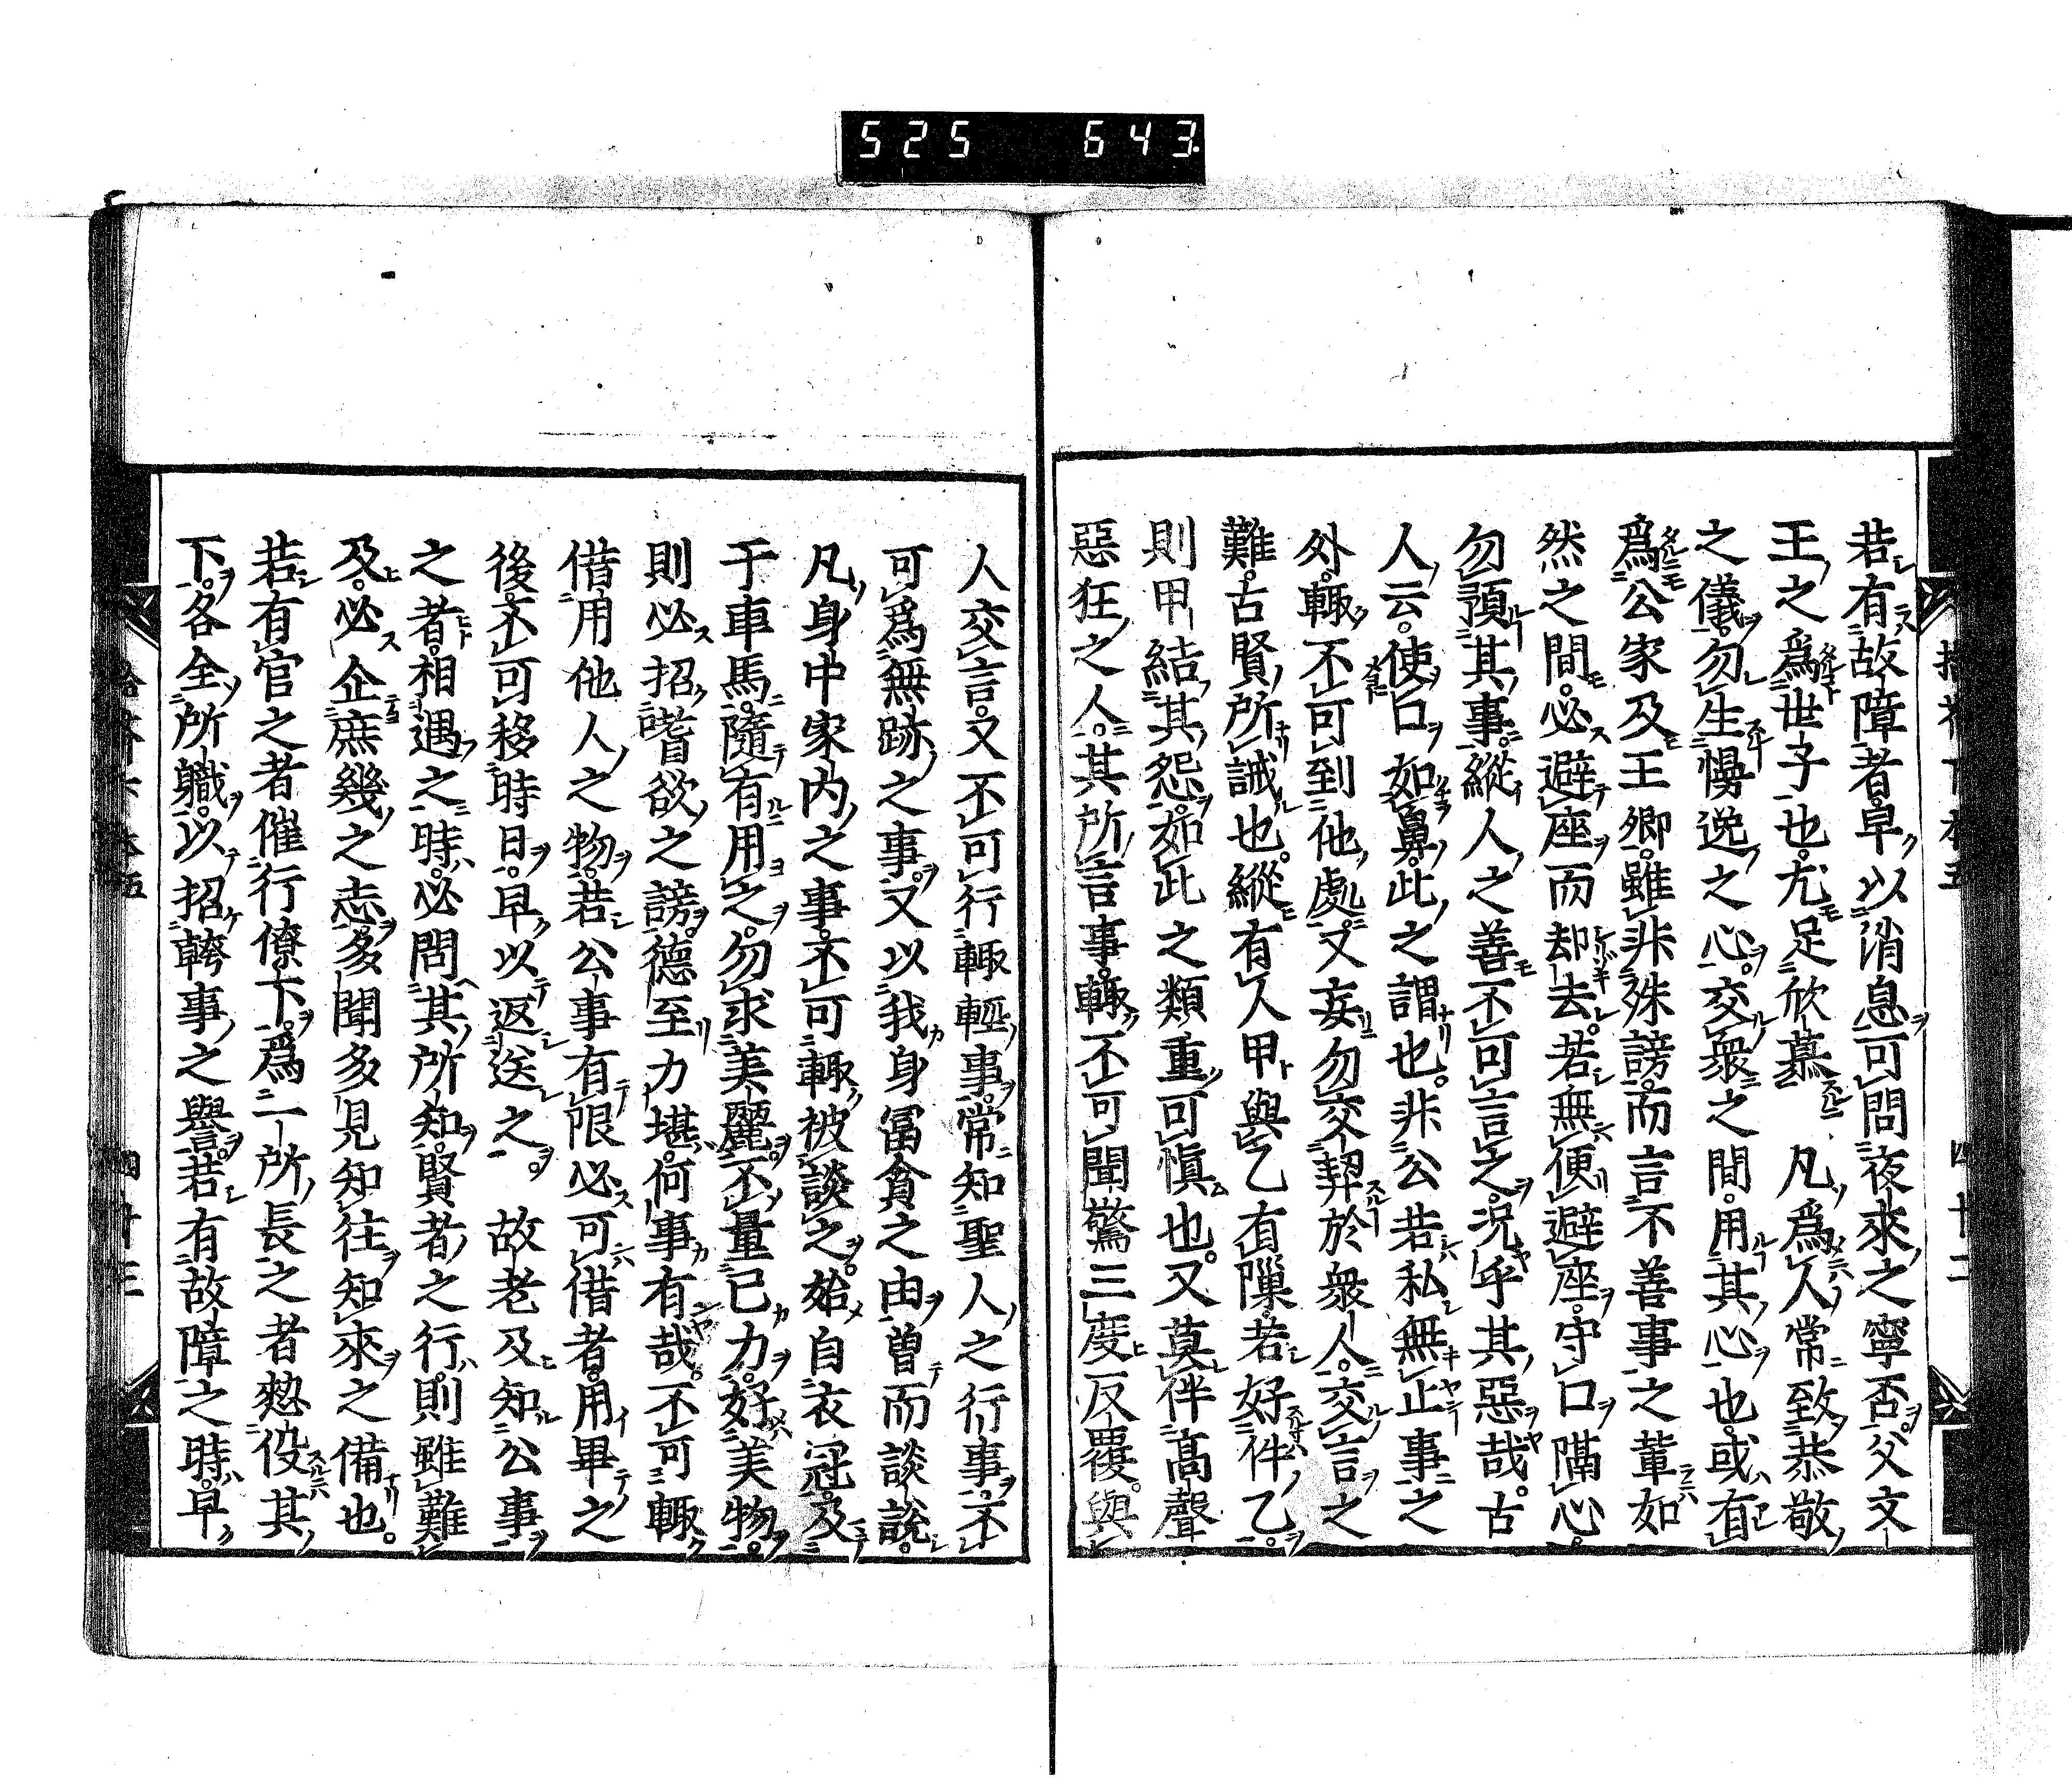 525 643
若有故障者早以消息可問夜來之寧否父文
王之爲世子也尤足欣慕 凡爲人常致恭敬
之儀勿生慢逸之心交衆之間用其心也或有
爲公家及王卿雖非殊謗而言不善事之輩如
然之間必避座而却去若無便避座守口隔心
勿預其事縱人之善不可言之況乎其惡哉古
人云使口如鼻此之謂也非公若私無止事之
外輙不可到他處又妄勿交契於衆人交言之
難古賢所誡也縱有人甲與乙有隟若好件乙
則甲結其怨如此之類重可愼也又莫伴高聲
惡狂之人其所言事輙不可聞驚三度反覆與
人交言又不可行輙輕事常知聖人之行事不
可爲無跡之事又以我身冨貪之由曽而談説
凡身中家内之事不可輙被談之始自衣冠及
于車馬隨有用之勿求美麗不量已力好美物
則必招嗜欲之謗德至力堪何事有哉不可輙
借用他人之物若公事有限必可借者用畢之
後不可移時日早以返送之 故老及知公事
之者相遇之時必問其所知賢者之行則雖難
及必企庶幾之志多聞多見知往知來之備也
若有官之者催行僚下爲一所長之者懃役其
下各全所職以招幹事之譽若有故障之時早